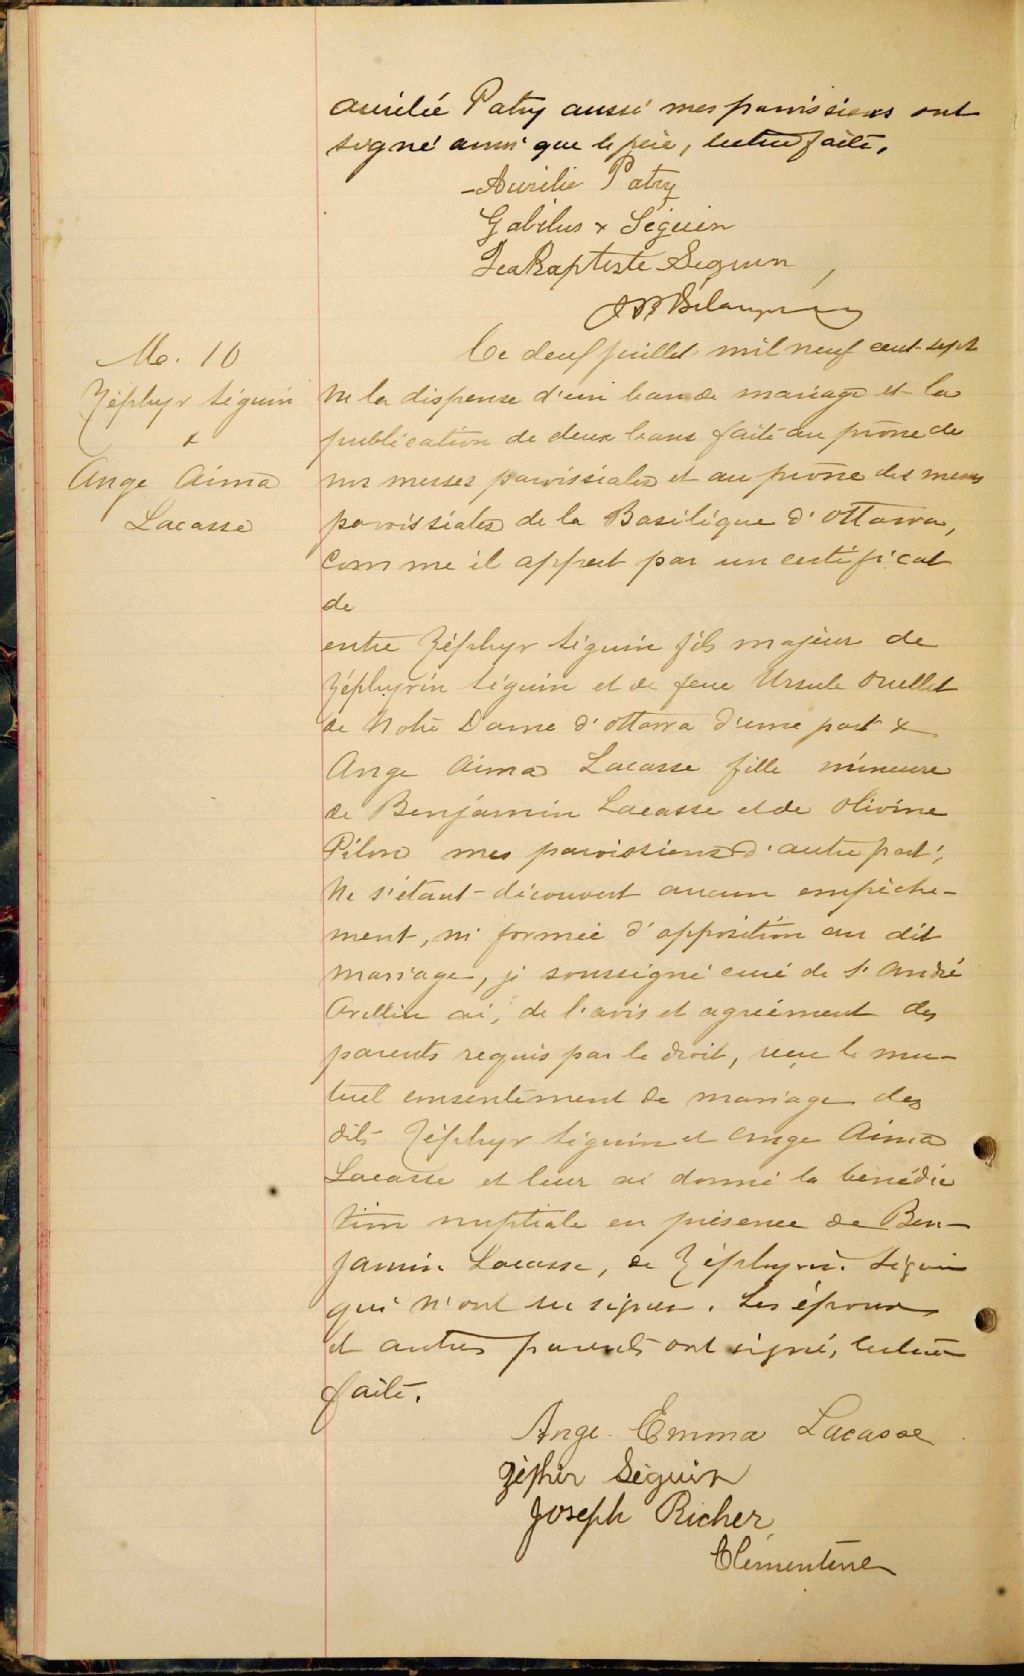 Aurélie Patry aussi mes paroissiens ont
signé ainsi que le père, lecture faite.
Aurélie Patry
Gabélus x Séguin
Jea Baptiste Seguin
J B Bélanger
M. 10
Zéphyr Séguin
&
Ange Aima
Lacasse
Ce deux juillet mil neuf cent-sept
Vu la dispense d'un ban de mariage et la
publication de deux bans faite au prône de
nos messes paroissiales et au prône des messes
paroissiales de la Basilique d'Ottawa,
comme il appert par un certificat
de
entre Zéphyr Séguin fils majeur de
Zéphyrin Séguin et de feue Ursule Ouellet
de Notre Dame d'Ottawa d'une part &
Ange Aima Lacasse fille mineure
de Benjamin Lacasse et de Olivine
Pilon mes paroissiens d'autre part,
Ne s'étant découvert aucun empêche-
ment, ni formée d'opposition au dit
mariage, je soussigné curé de St André
Avellin ai, de l'avis et agrément des
parents requis par le droit, reçu le mu-
tuel consentement de mariage des
dits Zéphyr Séguin et Ange Aima
Lacasse et leur ai donné la bénédic
tion nuptiale en présence de Ben-
jamin Lacasse, de Zéphyrin Séguin
qui n'ont su signer. Les époux
et autres parents ont signé, lecture
faite.
Ange Emma Lacasse
Zéphir Séguin
Joseph Richer
Clémentine